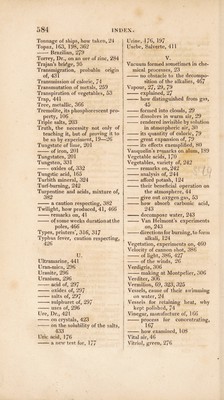 584 INDEX.
Tonnage of ships, how taken, 24
Topaz, 163, 198, 362
—— Brazilian, 279
Torrey, Dr., on an ore of zinc, 284
Trajan's bridge, 36
Transmigration, probable origin of, 431
Transmission of caloric, 74
Transmutation of metals, 259
Transpiration of vegetables, 53
Trap, 441
Tree, metallic, 305
Tremolite, its phosphorescent property, 106
Triple salts, 203
Truth, the necessity not only of teaching it, but of proving it to be so by experiment, 19—26
Tungstate of lime, 201
—— of iron, 201
Tungstates, 201
Tungsten, 331
—— oxides of, 332
Tungstic acid, 165
Turbith mineral, 324
Turf-burning, 242
Turpentine and acids, mixture of, 382
—— a caution respecting, 382
Twilight, how produced, 41, 466
—— remarks on, 41
—— of some weeks duration at the poles, 466
Types, printers', 316, 317
Typhus fever, caution respecting, 426
U.
Ultramarine, 441
Uran-mica, 296
Uranite, 296
Uranium, 296
—— acid of, 297
—— oxides of, 297
—— salts of, 297
—— sulphuret of, 297
—— uses of, 296
Ure, Dr., 421
—— on crystals, 423
—— on the solubility of the salts, 433
Uric acid, 176
—— a new test for, 177
Urine, 176, 197
Usebe, Balverte, 411
V.
Vacuum formed sometimes in chemical processes, 23
—— no obstacle to the decomposition of the alkalies, 467
Vapour, 27, 29, 79
—— explained, 27
—— how distinguished from gas, 43
—— formed into clouds, 29
—— dissolves in warm air, 29
—— rendered invisible by solution in atmospheric air, 30
—— its quantity of caloric, 79
—— great expansion of, 80
—— its effects exemplified, 80
Vauquelin's remarks on glass, 189
Vegetable acids, 170
Vegetables, variety of, 242
—— remarks on, 242
—— analysis of, 244
—— afford potash, 124
—— their beneficial operation on the atmosphere, 44
—— gives out oxygen gas, 53
—— how absorb carbonic acid, 243
—— decompose water, 243
—— Van Helmont's experiments on, 243
—— directions for burning, to form alkali, 124
Vegetation, experiments on, 460
Velocity of cannon shot, 386
—— of light, 386, 427
—— of the winds, 26
Verdigris, 306
—— making at Montpelier, 306
Verditer, 306
Vermilion, 69, 323, 325
Vessels, cause of their swimming on water, 24
Vessels for retaining heat, why kept polished, 74
Vinegar, manufacture of, 166
—— process for concentrating, 167
—— how examined, 108
Vital air, 46
Vitriol, green, 276